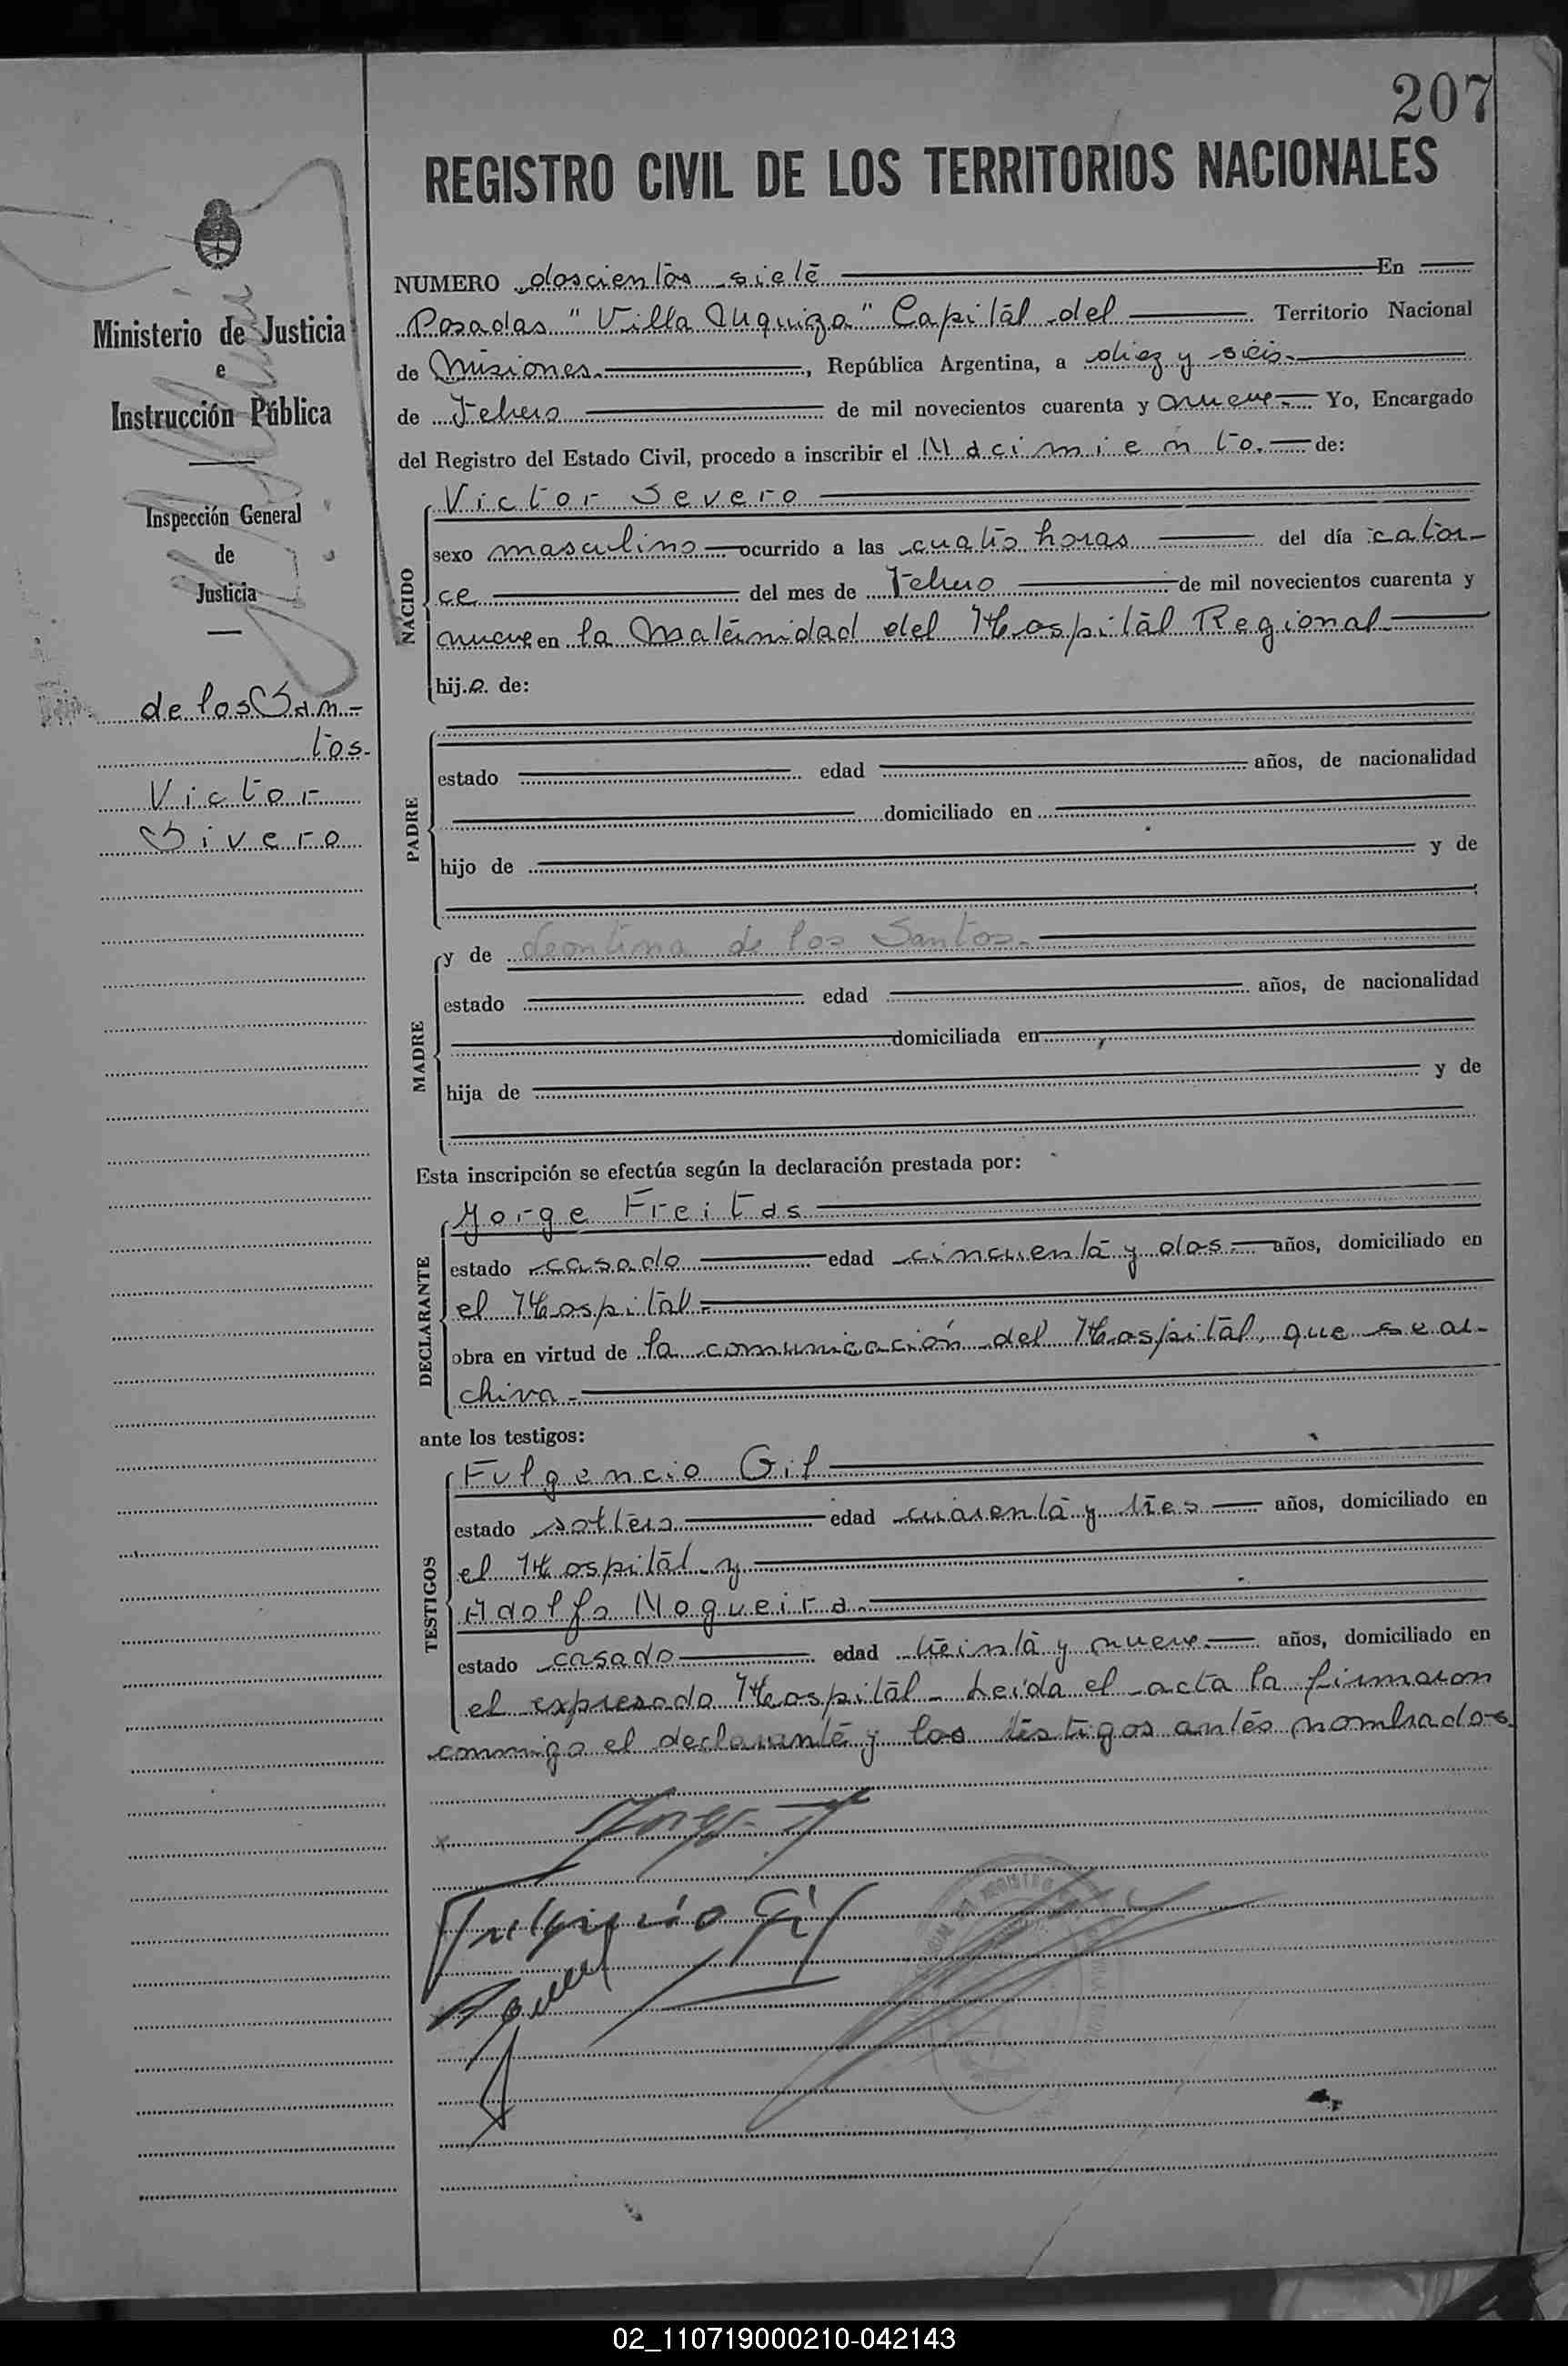 207
REGISTRO CIVIL DE LOS TERRITORIOS NACIONALES
Ministerio de Justicia
e
Instrucción Pública
Inspección General
de
Justicia
de los San-
tos.
Victor
Sivero
NUMERO doscientos siete En
Posadas "Villa Urquiza" Capital del Territorio Nacional
de Misiones. , República Argentina, a diez y seis.
de Febrero de mil novecientos cuarenta y nueve. Yo, Encargado
del Registro del Estado Civil, procedo a inscribir el Nacimiento. de:
NACIDO
Victor Severo
sexo masculino ocurrido a las cuatro horas del día cator-
ce del mes de Febrero de mil novecientos cuarenta y
nueve en la Maternidad del Hospital Regional.
hijo de:
PADRE
estado edad años, de nacionalidad
domiciliado en
hijo de y de
MADRE
y de Leontina de los Santos.
estado edad años, de nacionalidad
domiciliada en
hija de y de
Esta inscripción se efectúa según la declaración prestada por:
DECLARANTE
Jorge Freitas
estado casado edad cincuenta y dos. años, domiciliado en
el Hospital.
obra en virtud de la comunicación del Hospital, que se ar-
chiva.
ante los testigos:
TESTIGOS
Fulgencio Gil
estado soltero edad cuarenta y tres años, domiciliado en
el Hospital y
Adolfo Nogueira.
estado casado edad treinta y nueve. años, domiciliado en
el expresado Hospital. Leída el acta la firmaron
conmigo el declarante y los testigos antes nombrados.
Jorge
Fulgencio Gil
02_110719000210-042143